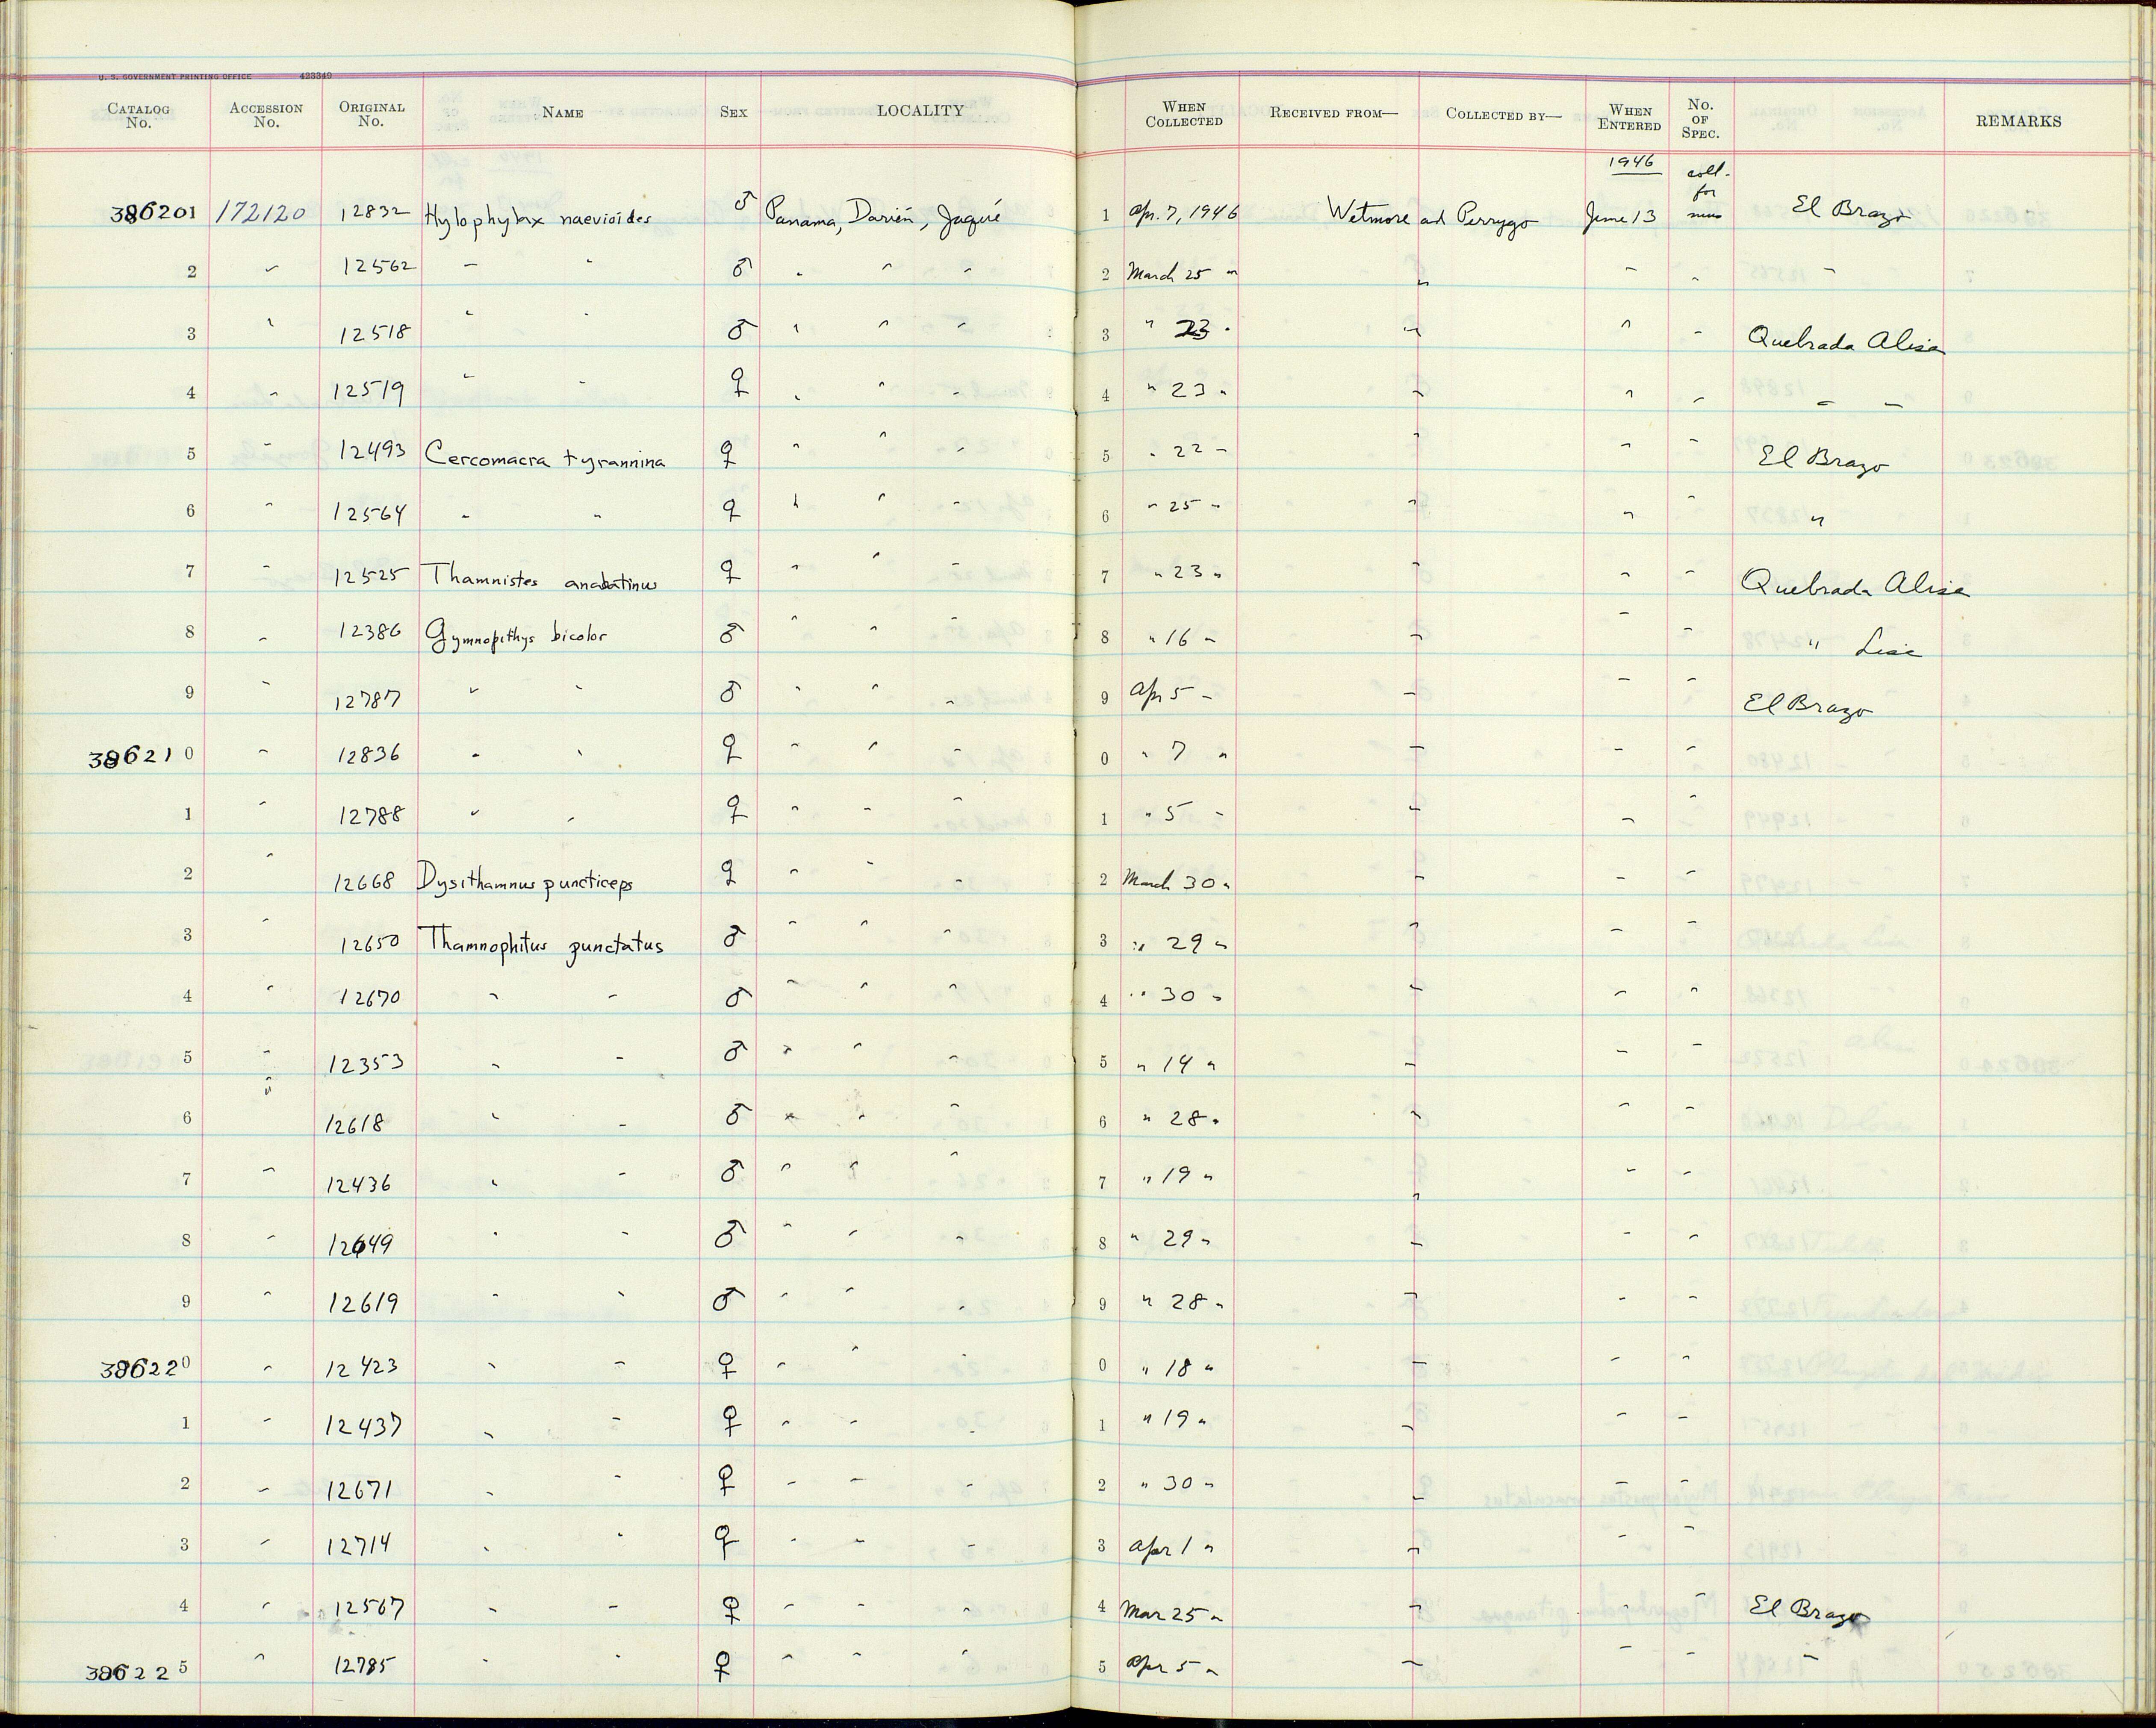 U. S. GOVERNMENT PRINTING OFFICE 423349
CATALOG No. ACCESSION No. ORIGINAL No. NAME SEX LOCALITY WHEN COLLECTED RECEIVED FROM— COLLECTED BY— WHEN ENTERED No. OF SPEC. REMARKS
1946 coll. for
386201 172120 12832 Hylophylax naevioides ♂ Panama, Darién, Jaqué 1 Apr. 7, 1946 Wetmore and Perrygo June 13 mus El Brazo
2 " 12562 " " ♂ " " " 2 March 25 " " " " "
3 " 12518 " " ♂ " " " 3 " 23 " " " " Quebrada Alisa
4 " 12519 " " ♀ " " 4 " 23 " " " " " "
5 " 12493 Cercomacra tyrannina ♀ " " " 5 " 22 " " " " El Brazo
6 " 12564 " " ♀ " " " 6 " 25 " " " " "
7 " 12525 Thamnistes anabatinus ♀ " " " 7 " 23 " " " " Quebrada Alisa
8 " 12386 Gymnopithys bicolor ♂ " " " 8 " 16 " " " " " Lisa
9 " 12787 " " ♂ " " " 9 Apr 5 " " " " El Brazo
386210 " 12836 " " ♀ " " " 0 " 7 " " " "
1 " 12788 " " ♀ " " " 1 " 5 " " " "
2 " 12668 Dysithamnus puncticeps ♀ " " " 2 March 30 " " " "
3 " 12650 Thamnophilus punctatus ♂ " " " 3 " 29 " " " "
4 " 12670 " " ♂ " " " 4 " 30 " " " "
5 " 12353 " " ♂ " " " 5 " 14 " " " "
6 " 12618 " " ♂ " " " 6 " 28 " " " "
7 " 12436 " " ♂ " " " 7 " 19 " " " "
8 " 12649 " " ♂ " " " 8 " 29 " " " "
9 " 12619 " " ♂ " " " 9 " 28 " " " "
386220 " 12423 " " ♀ " " " 0 " 18 " " " "
1 " 12437 " " ♀ " " " 1 " 19 " " " "
2 " 12671 " " ♀ " " " 2 " 30 " " " "
3 " 12714 " " ♀ " " " 3 Apr 1 " " " "
4 " 12567 " " ♀ " " " 4 Mar 25 " " " " El Brazo
386225 " 12785 " " ♀ " " " 5 Apr 5 " " " " "